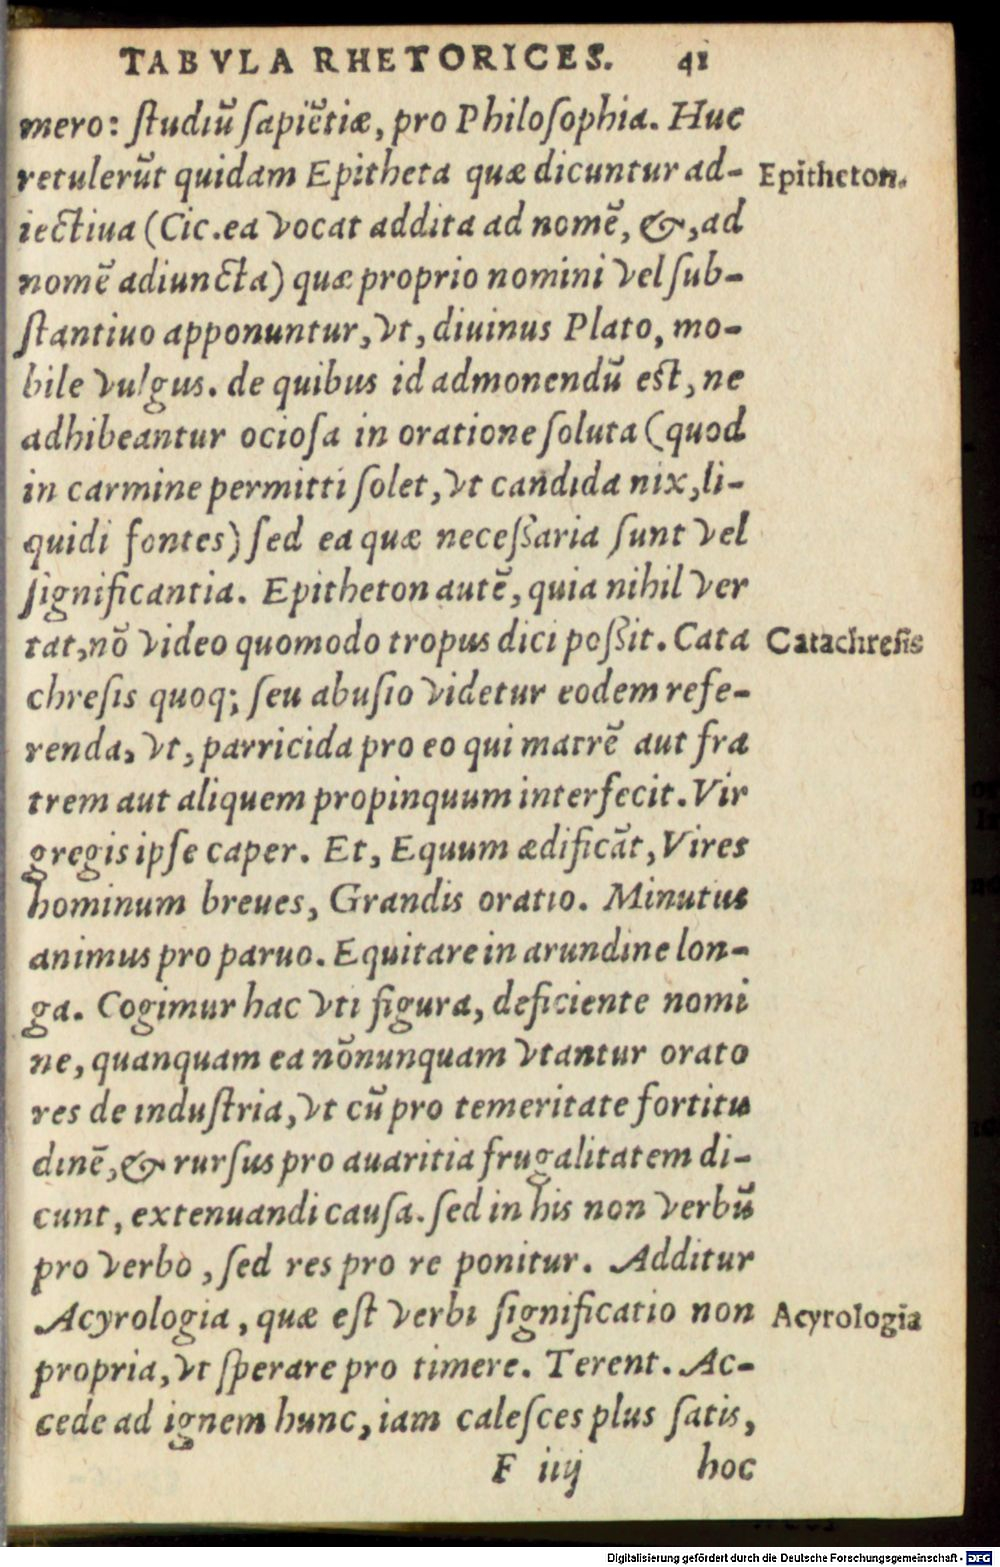 TABVLA RHETORICES. 41
mero: ſtudiũ ſapiẽtiæ, pro Philoſophia. Huc
retulerũt quidam Epitheta quæ dicuntur ad-
Epitheton.
iectiua (Cic. ea vocat addita ad nomẽ, &, ad
nomẽ adiuncta) quæ proprio nomini vel ſub-
ſtantiuo apponuntur, vt, diuinus Plato, mo-
bile vulgus. de quibus id admonendũ eſt, ne
adhibeantur ocioſa in oratione ſoluta (quod
in carmine permitti ſolet, vt candida nix, li-
quidi fontes) ſed ea quæ neceßaria ſunt vel
ſignificantia. Epitheton autẽ, quia nihil ver
tat, nõ video quomodo tropus dici poßit. Cata
Catachreſis
chreſis quoq; ſeu abuſio videtur eodem refe-
renda, vt, parricida pro eo qui matrẽ aut fra
trem aut aliquem propinquum interfecit. Vir
gregis ipſe caper. Et, Equum ædificãt, Vires
hominum breues, Grandis oratio. Minutus
animus pro paruo. Equitare in arundine lon-
ga. Cogimur hac vti figura, deficiente nomi
ne, quanquam ea nõnunquam vtantur orato
res de induſtria, vt cũ pro temeritate fortitu
dinẽ, & rurſus pro auaritia frugalitatem di-
cunt, extenuandi cauſa. ſed in his non verbũ
pro verbo, ſed res pro re ponitur. Additur
Acyrologia, quæ eſt verbi ſignificatio non
Acyrologia
propria, vt ſperare pro timere. Terent. Ac-
cede ad ignem hunc, iam caleſces plus ſatis,
F iiij hoc
Digitalisierung gefördert durch die Deutsche Forschungsgemeinschaft - DFG